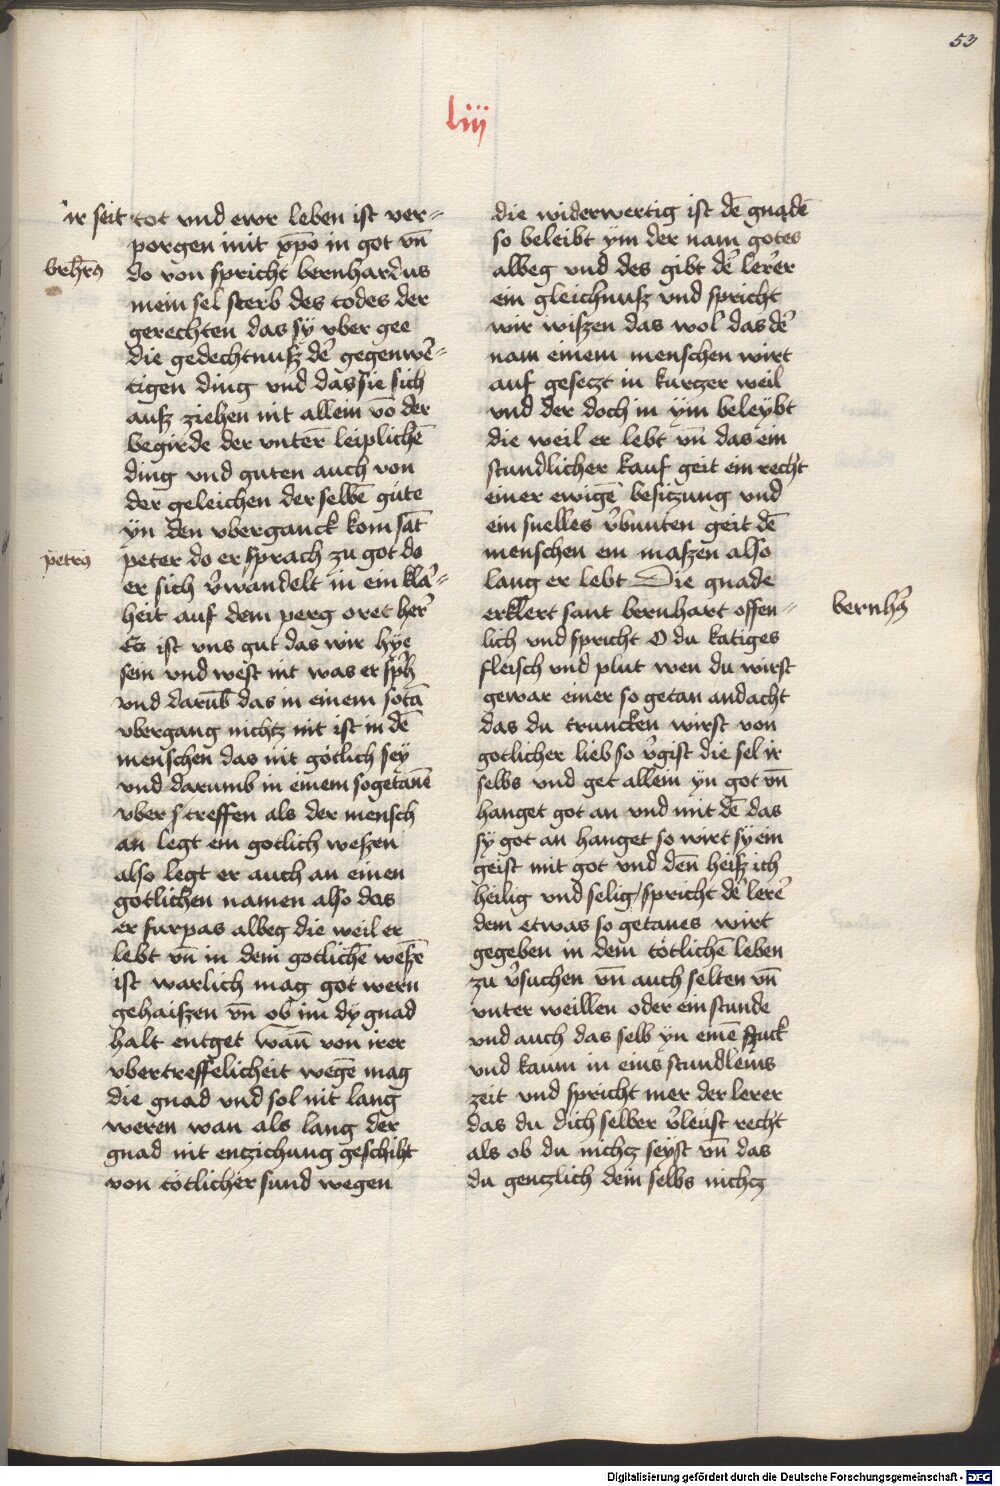 53
liij
ir seit tot vnd ewr leben ist ver⸗
porgen mit xp̄o in got vn̄
bernh̄9
do von spricht bernhardus
mein sel sterb des todes der
gerechten das sÿ vber gee
die gedechtnuſz de᷑ gegenwe᷑⸗
tigen ding vnd das sie sich
auſz ziehen nit allein vō der
begirde der vnter̄ leiplichē
ding vnd guten auch von
der geleichen der selbē gute
ÿn den vberganck kom sāt
petrus
peter do er sprach zu got do
er sich v᷑wandelt in ein kla᷑⸗
heit auf dem perg oret her᷑
Es ist vns gut das wir hÿe
sein vnd west nit was er sp̄ch
vnd darūb das in einem sotā
vbergang nichtz nit ist in dē
menschen das nit götlich seÿ
vnd darumb in einem sogetanē
vber streffen als der mensch
an legt ein gotlich weſzen
also legt er auch an einen
gotlichen namen also das
er furpas albeg die weil er
lebt vn̄ in dem gotlichē weſzē
ist warlich mag got wern
gehaiſzen vn̄ ob im dÿ gnad
halt entget wan̄ von irer
vbertreffelicheit wegē mag
die gnad vnd sol nit lang
weren wan als lang der
gnad nit entzichung geschiht
von tötlicher sund wegen
die widerwertig ist dē gnadē
so beleibt ÿm der nam gotes
albeg vnd des gibt de᷑ lere᷑r
ein gleichnuſz vnd spricht
wir wiſzen das wol das de᷑
nam einem menschen wirt
auf gesetzt in kurtzer weil
vnd der doch in ÿm beleÿbt
die weil er lebt vn̄ das ein
stundlicher kauf geit ein recht
einer ewigē besitzung vnd
ein snelles v᷑bunten geit dē
menschen ein maſzen also
lang er lebt Die gnade
bernh9
erklert sant bernhart offen⸗
lich vnd spricht O du katiges
fleisch vnd plut wen du wirst
gewar einer so getan andacht
das du truncken wirst von
gotlicher lieb so v᷑gist die sel ir
selbs vnd get allein ÿn got vn̄
hanget got an vnd mit dē das
sÿ got an hanget so wirt sÿ ein
geist mit got vnd den̄ heiſz ich
heilig vnd selig / spricht de᷑ lere᷑
dem etwas so getanes wirt
gegeben in dem tötlichē leben
zu v᷑suchen vn̄ auch selten vn̄
vnter weillen oder ein stunde
vnd auch das selb ÿn einē zuck
vnd kaum in eins stundleins
zeit vnd spricht mer der lerer
das du dich selber v᷑leust recht
als ob du nichtz seÿst vn̄ das
du gentzlich dein selbs nichtz
Digitalisierung gefördert durch die Deutsche Forschungsgemeinschaft - DFG